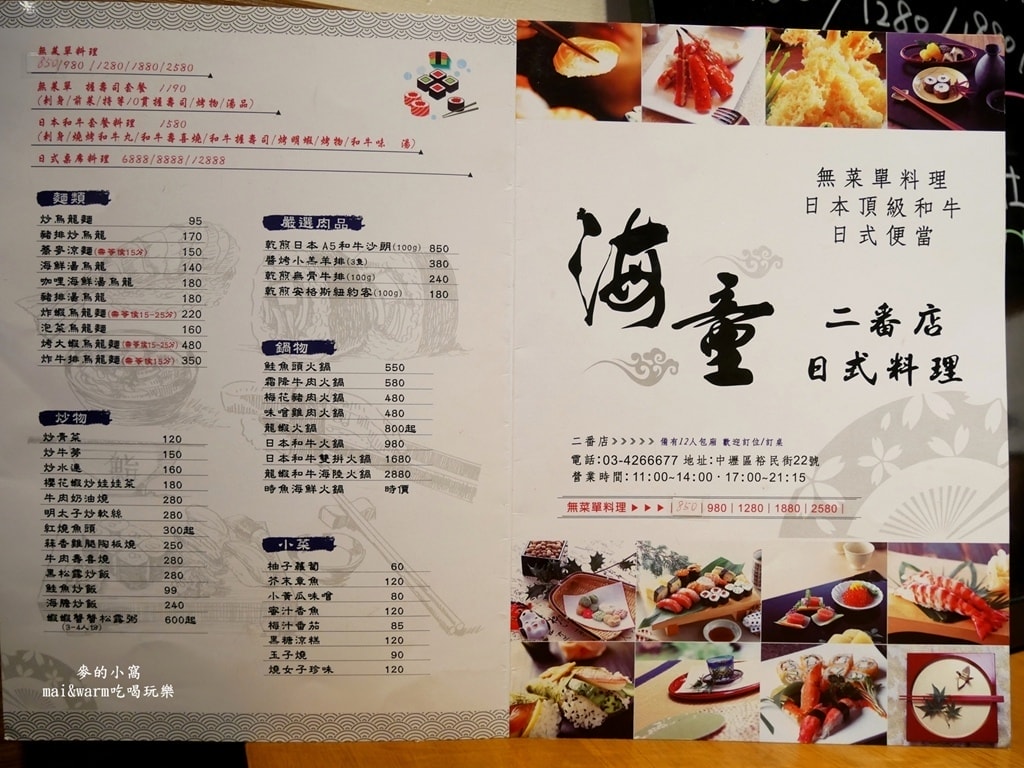 無菜單料理
850/980 /1280/1880/2580
無菜單 握壽司套餐 1190
(刺身/前菜/特等10貫握壽司/烤物/湯品)
日本和牛套餐料理 1580
(刺身/燒烤和牛丸/和牛壽喜燒/和牛握壽司/烤明蝦/烤物/和牛味 湯)
日式桌席料理 6888/8888/12888
麵類
炒烏龍麵 95
豬排炒烏龍 170
蕎麥涼麵(需等候15分) 150
海鮮湯烏龍 140
咖哩海鮮湯烏龍 180
豬排湯烏龍 180
炸蝦烏龍麵(需等候15-25分) 220
泡菜烏龍麵 160
烤大蝦烏龍麵(需等候15-25分) 480
炸牛排烏龍麵(需等候15分) 350
炒物
炒青菜 120
炒牛蒡 150
炒水蓮 160
櫻花蝦炒娃娃菜 180
牛肉奶油燒 280
明太子炒軟絲 280
紅燒魚頭 300起
蒜香雞腿陶板燒 250
牛肉壽喜燒 280
黑松露炒飯 280
鮭魚炒飯 99
海膽炒飯 240
蝦蝦蟹蟹松露粥 600起
(3-4人份)
嚴選肉品
乾煎日本A5和牛沙朗(100g) 850
醬烤小羔羊排(3隻) 380
乾煎無骨牛排(100g) 240
乾煎安格斯紐約客(100g) 180
鍋物
鮭魚頭火鍋 550
霜降牛肉火鍋 580
梅花豬肉火鍋 480
味噌雞肉火鍋 480
龍蝦火鍋 800起
日本和牛火鍋 980
日本和牛雙拼火鍋 1680
龍蝦和牛海陸火鍋 2880
時魚海鮮火鍋 時價
小菜
柚子蘿蔔 60
芥末章魚 120
小黃瓜味噌 80
蜜汁香魚 120
梅汁番茄 85
黑糖涼糕 120
玉子燒 90
燒女子珍味 120
麥的小窩
mai&warm吃喝玩樂
/1280/1880
無菜單料理
日本頂級和牛
日式便當
海童
二番店
日式料理
二番店>>>>> 備有12人包廂 歡迎訂位/訂桌
電話:03-4266677 地址:中壢區裕民街22號
營業時間:11:00~14:00‧17:00~21:15
無菜單料理 ▶ ▶ ▶ | 850 | 980 | 1280 | 1880 | 2580 |